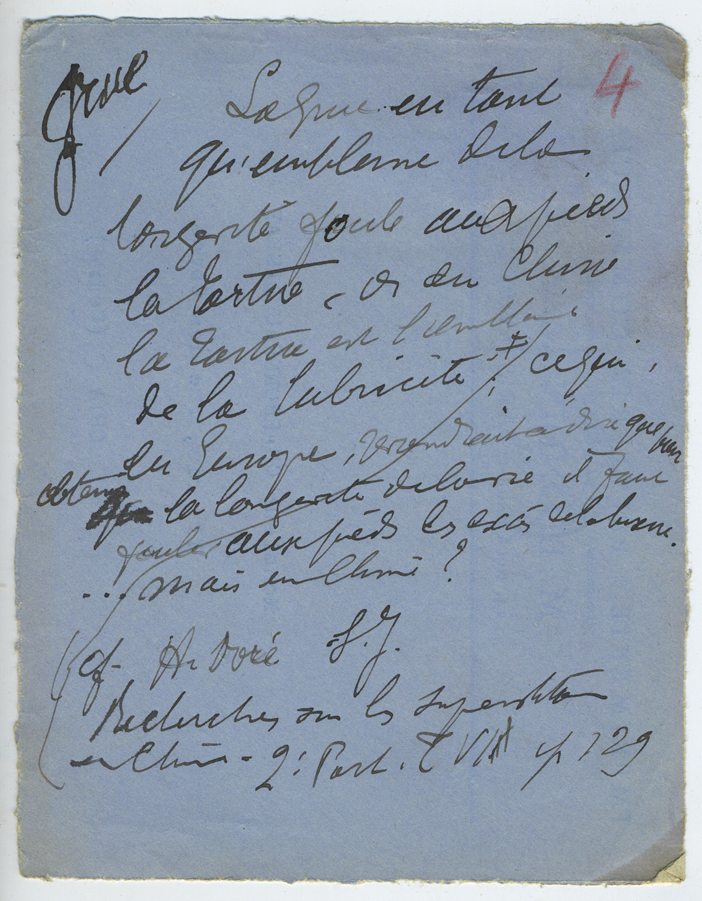 Grue
4
La grue en tant
qu'emblème de la
longevité foule aux pieds
la tortue, or en Chine
la tortue est l'emblème
de la lubricité ; ‡ ce qui,
en Europe, reviendrait à dire que pour
obtenir la longevité de la vie il faut
fouler aux pieds les excès de luxure.
... mais en Chine ?
(cf. H. Doré S.J.
Recherches sur les superstitions
en Chine - 2e Part. T VIII p 329